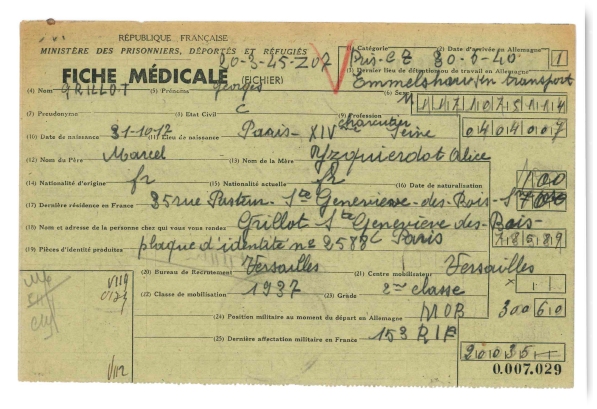 RÉPUBLIQUE FRANÇAISE
MINISTÈRE DES PRISONNIERS, DÉPORTÉS ET RÉFUGIÉS
FICHE MÉDICALE
(FICHIER)
(1) Catégorie
(2) Date d'arrivée en Allemagne
1
(3) Dernier lieu de détention ou de travail en Allemagne
transport
(4) Nom GRILLOT
(5) Prénoms Georges
(6) Sexe M
(7) Pseudonyme
(8) Etat Civil C
(9) Profession charcutier
(10) Date de naissance
(11) Lieu de naissance Paris - XIV Seine
(12) Nom du Père Marcel
(13) Nom de la Mère Yzquierdot Alice
(14) Nationalité d'origine fr
(15) Nationalité actuelle fr
(16) Date de naturalisation
(17) Dernière résidence en France 35 rue Pasteur Ste Geneviève-des-Bois
(18) Nom et adresse de la personne chez qui vous vous rendez Grillot Ste Geneviève des-Bois
78589
(19) Pièces d'identité produites plaque d'identité n° 2583 Paris
(20) Bureau de Recrutement Versailles
(21) Centre mobilisateur Versailles
(22) Classe de mobilisation 1937
(23) Grade 2me classe
(24) Position militaire au moment du départ en Allemagne MOB
30060
(25) Dernière affectation militaire en France 153 RIF
0.007.029